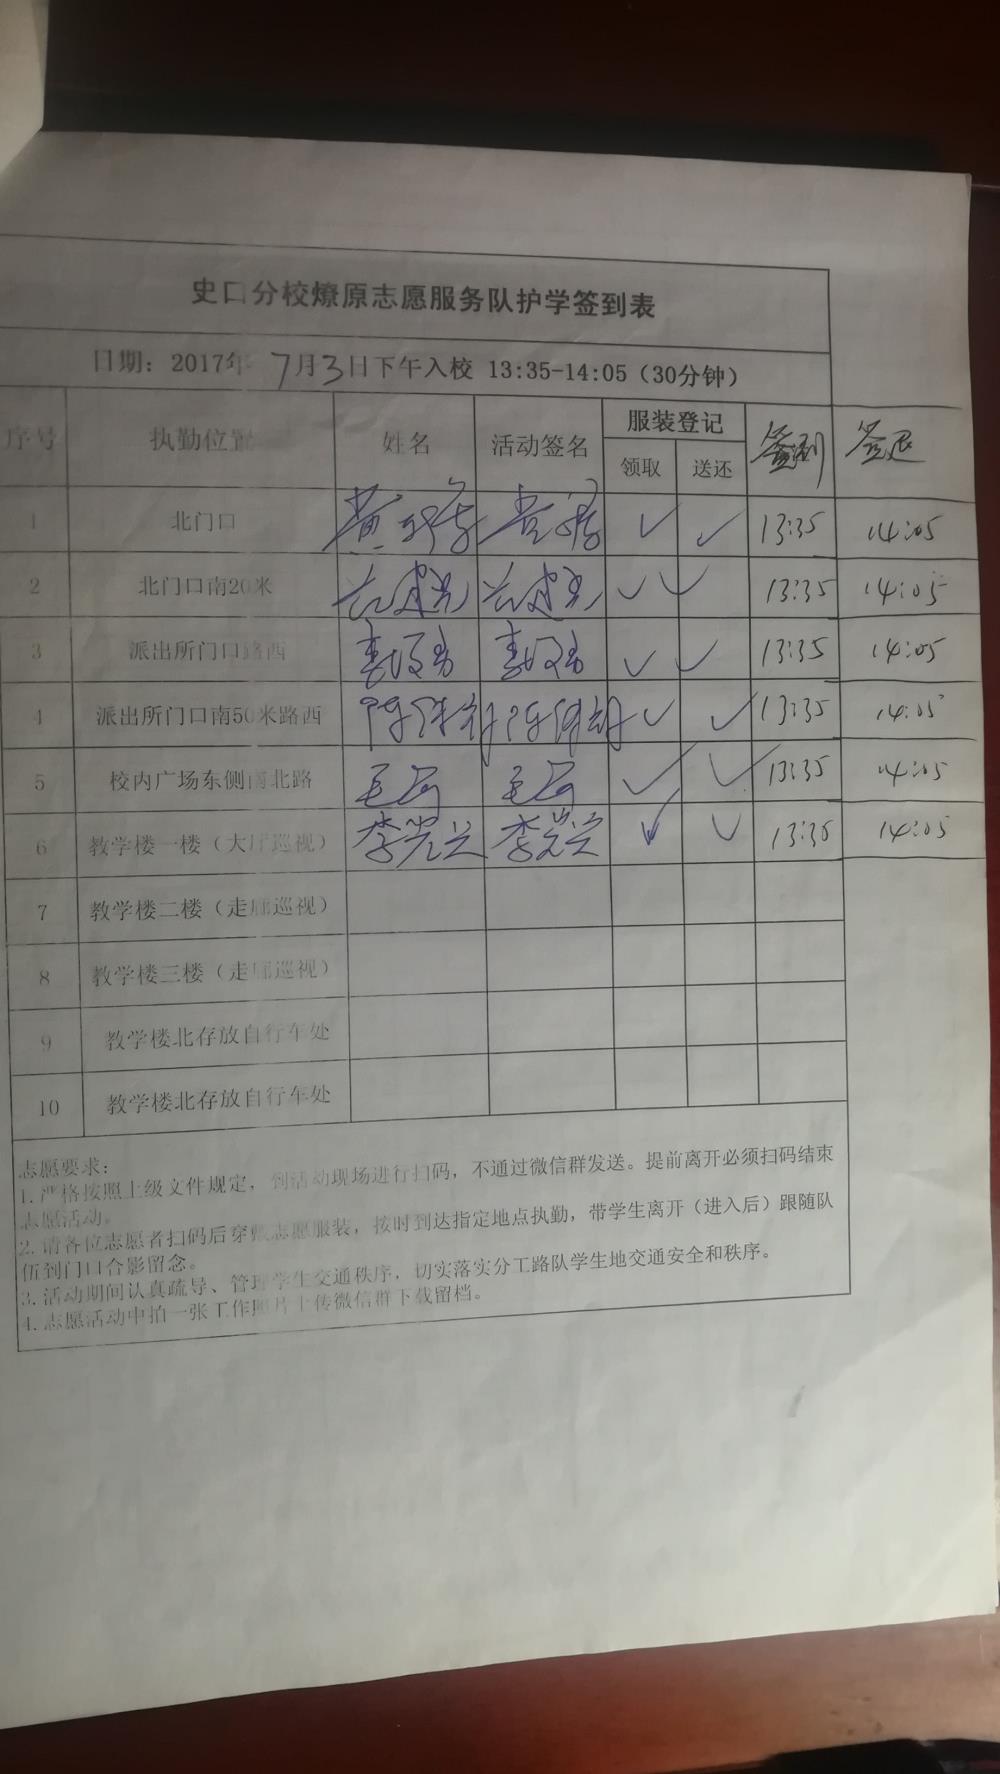 史口分校燎原志愿服务队护学签到表
日期：2017年 7月3日下午入校 13:35-14:05（30分钟）
序号 执勤位置 姓名 活动签名 服装登记 签到 签退
领取 送还
1 北门口 ✓ ✓ 13:35 14:05
2 北门口南20米 ✓ ✓ 13:35 14:05
3 派出所门口路西 ✓ ✓ 13:35 14:05
4 派出所门口南50米路西 ✓ ✓ 13:35 14:05
5 校内广场东侧南北路 ✓ ✓ 13:35 14:05
6 教学楼一楼（大厅巡视） 李光兴 李光兴 ✓ ✓ 13:35 14:05
7 教学楼二楼（走廊巡视）
8 教学楼三楼（走廊巡视）
9 教学楼北存放自行车处
10 教学楼北存放自行车处
志愿要求：
1. 严格按照上级文件规定，到活动现场进行扫码，不通过微信群发送。提前离开必须扫码结束
志愿活动。
2. 请各位志愿者扫码后穿戴志愿服装，按时到达指定地点执勤，带学生离开（进入后）跟随队
伍到门口合影留念。
3. 活动期间认真疏导、管理学生交通秩序，切实落实分工路队学生地交通安全和秩序。
4. 志愿活动中拍一张工作照片上传微信群下载留档。